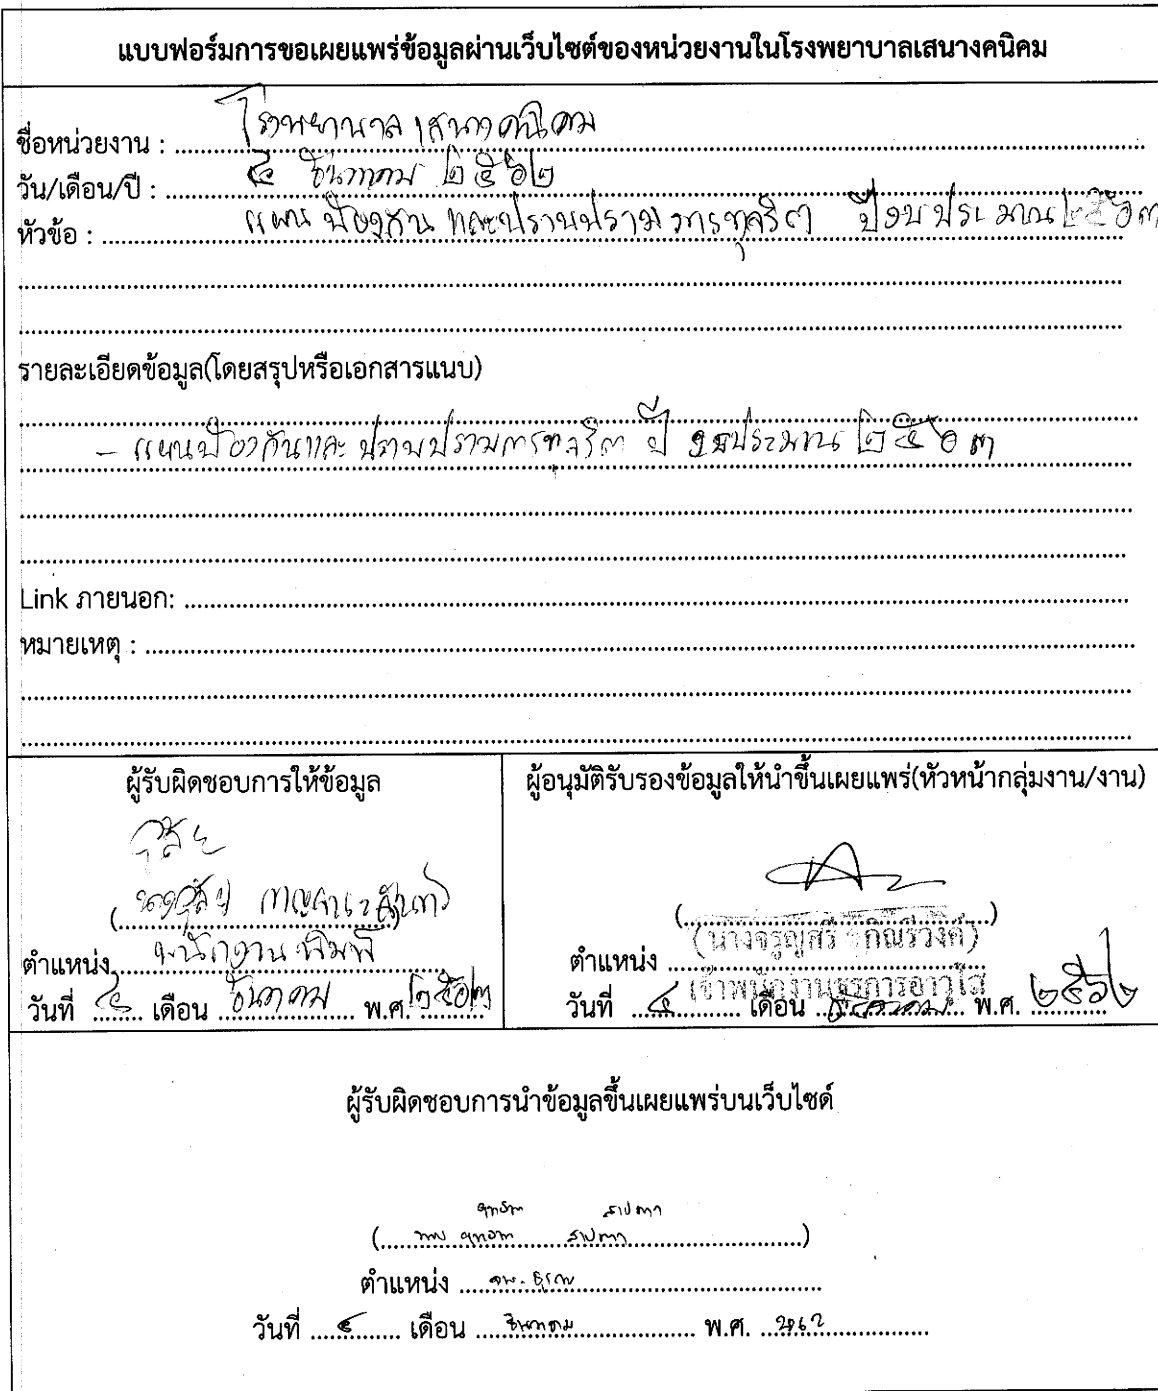 แบบฟอร์มการขอเผยแพร่ข้อมูลผ่านเว็บไซต์ของหน่วยงานในโรงพยาบาลเสนางคนิคม
ชื่อหน่วยงาน : โรงพยาบาลเสนางคนิคม
วัน/เดือน/ปี : ๔ ธันวาคม ๒๕๖๒
หัวข้อ : แผนป้องกันและปราบปรามการทุจริต ปีงบประมาณ ๒๕๖๓
รายละเอียดข้อมูล(โดยสรุปหรือเอกสารแนบ)
- แผนป้องกันและปราบปรามการทุจริต ปี งบประมาณ ๒๕๖๓
Link ภายนอก:
หมายเหตุ :
ผู้รับผิดชอบการให้ข้อมูล
(
ตำแหน่ง พนักงานพิมพ์
วันที่ ๔ เดือน ธันวาคม พ.ศ.
ผู้อนุมัติรับรองข้อมูลให้นำขึ้นเผยแพร่(หัวหน้ากลุ่มงาน/งาน)
(นางจรูญศรี
ตำแหน่ง เจ้าพนักงานธุรการอาวุโส
วันที่ ๔ เดือน ธันวาคม พ.ศ. ๒๕๖๒
ผู้รับผิดชอบการนำข้อมูลขึ้นเผยแพร่บนเว็บไซด์
( )
ตำแหน่ง จพ.ธุรการ
วันที่ ๔ เดือน ธันวาคม พ.ศ. ๒๕๖๒